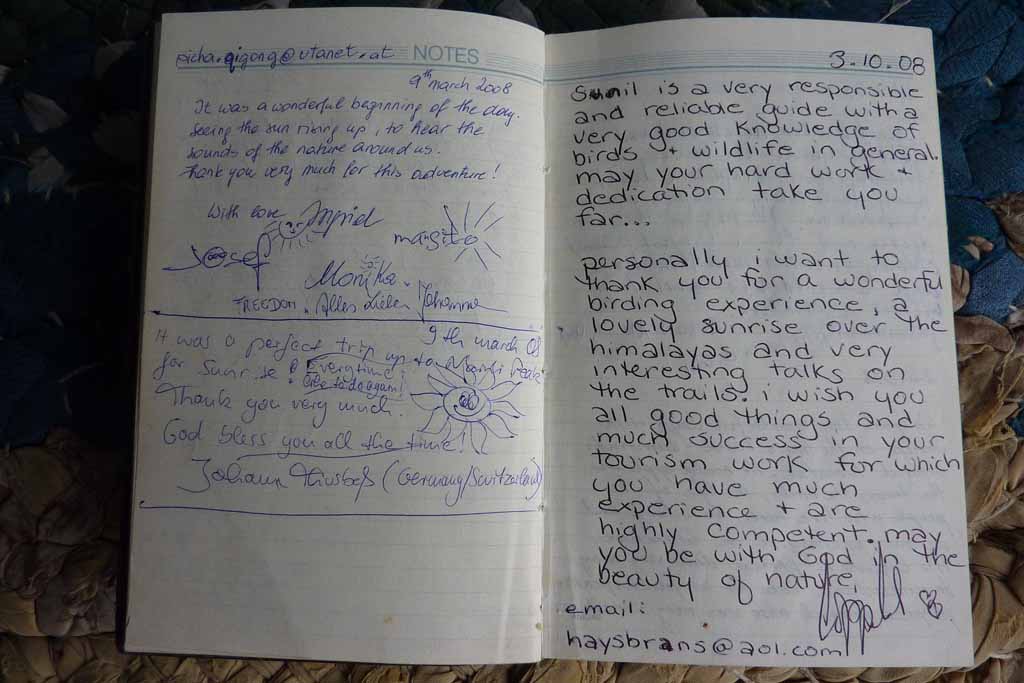 picha.qigong@utanet.at
NOTES
9th march 2008
It was a wonderful beginning of the day.
seeing the sun rising up, to hear the
sounds of the nature around us.
Thank you very much for this adventure!
With love
Josef
Monika
FREEDOM. Alles Liebe Johanna
9th march 08
It was a perfect trip up to
for Sunrise Everytime
like to do again!
Thank you very much.
God bless you all the time!
Johann (Germany/Switzerland)
3.10.08
Sunil is a very responsible
and reliable guide with a
very good knowledge of
birds + wildlife in general.
may your hard work +
dedication take you
far...
personally i want to
thank you for a wonderful
birding experience, a
lovely sunrise over the
himalayas and very
interesting talks on
the trails. i wish you
all good things and
much success in your
tourism work for which
you have much
experience + are
highly competent. may
you be with God in the
beauty of nature.
email:
haysbrans@aol.com